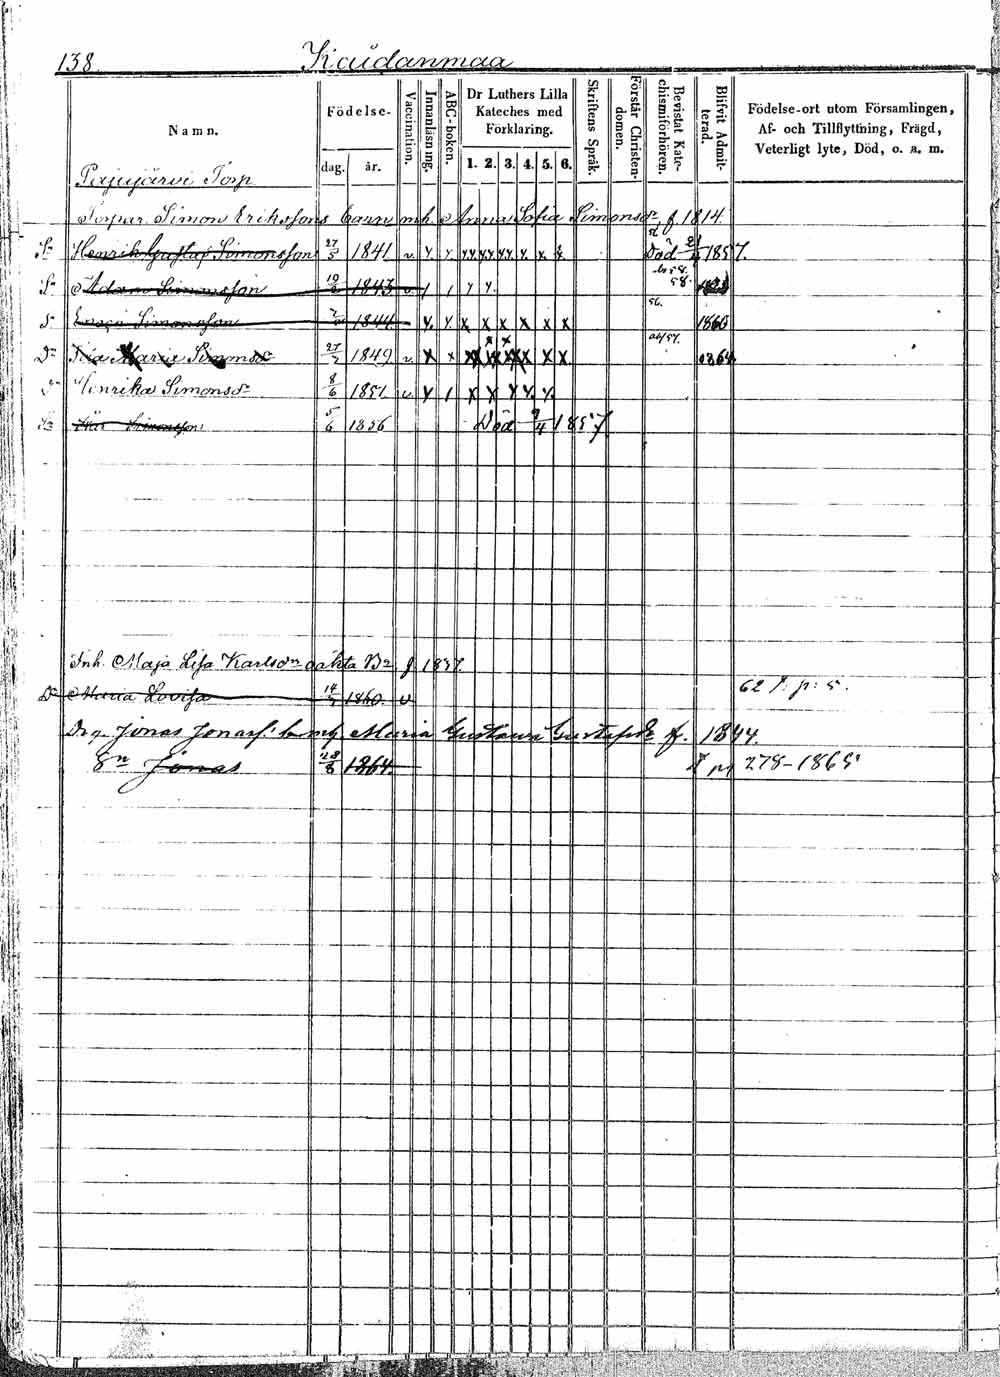 138. Kaudanmaa
Namn.
Födelse-
dag. år.
Vaccination.
Innanläsning.
ABC-boken.
Dr Luthers Lilla
Kateches med
Förklaring.
1. 2. 3. 4. 5. 6.
Skriftens Språk.
Förstår Christen-
domen.
Bevistat Kate-
chismiförhören.
Blifvit Admit-
terad.
Födelse-ort utom Församlingen,
Af- och Tillflyttning, Frägd,
Veterligt lyte, Död, o. s. m.
Pajujärvi Torp
Torpar. Simon Erikssons barn mh. Anna Sofia Simonsdr f 1814.
Sn Henrik Gustaf Simonsson 27/5 1841 v. Död 1857.
Sn Adam Simonsson 1843 v 58.
Sn Simonsson 1844 56. 1860
Dr Maria Simonsdr 27/7 1849 v 1864
Dr Henrika Simonsdr 8/6 1851 v
Sn Simonsson 5/6 1856 Död 9/4 1857
Inh. Maja Lisa Karlsdr oäkta Bn f 1837.
Dr Maria Lovisa 14/7 1860. v 62 f. p: 5.
Drg Jonas Jonass. b mh. Maria Gustava Gustafsdr f. 1844.
Sn Jonas 28/8 1864. 278-1865